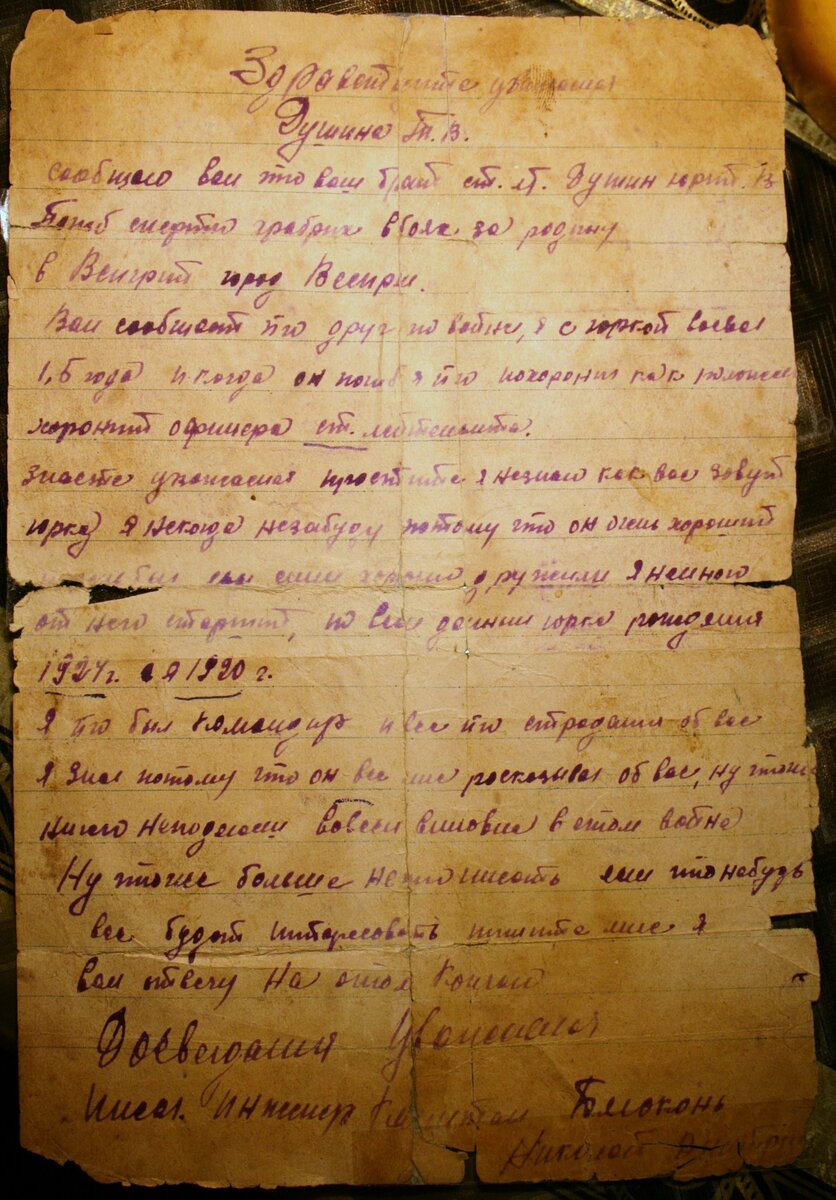 Здравствуйте уважаемая
Душина Т. В.
сообщаю вам что ваш брат ст. лт. Душин юрий. В
Погиб смертю храбрых в боях за родину
в Венгрии город Веспрем.
Вам сообщает его друг по войне, я с юркой воевал
1,5 года и когда он погиб я его похоронил как положено
хоронит офицера ст. лейтенанта.
знаете уважаемая простите я незнаю как вас зовут
юрка я некогда незабуду потому что он очень хороший
был мы сним хорошо дружили я немного
от него старший, по всем данным юрка рождения
1924г. а я 1920 г.
я его был командир и все его страдания об вас
я знал потому что он все мне росказывал об вас, ну чтоже
ничего неподелаеш вовсем виновна в етом война
Ну чтоже больше нечего писать если что небудь
вас будет интересовать пишите мне я
вам отвечу На етом кончаю
Досведания Уважаемая
Писал Инженер Капитан Белоконь
Николай